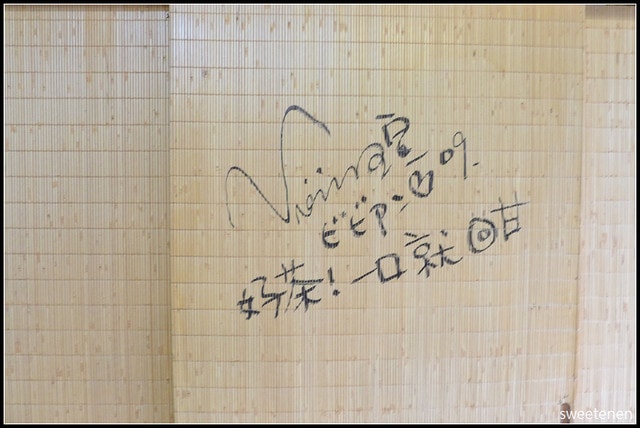 ビビアン 09.
好茶!一口就回甘
sweetenen